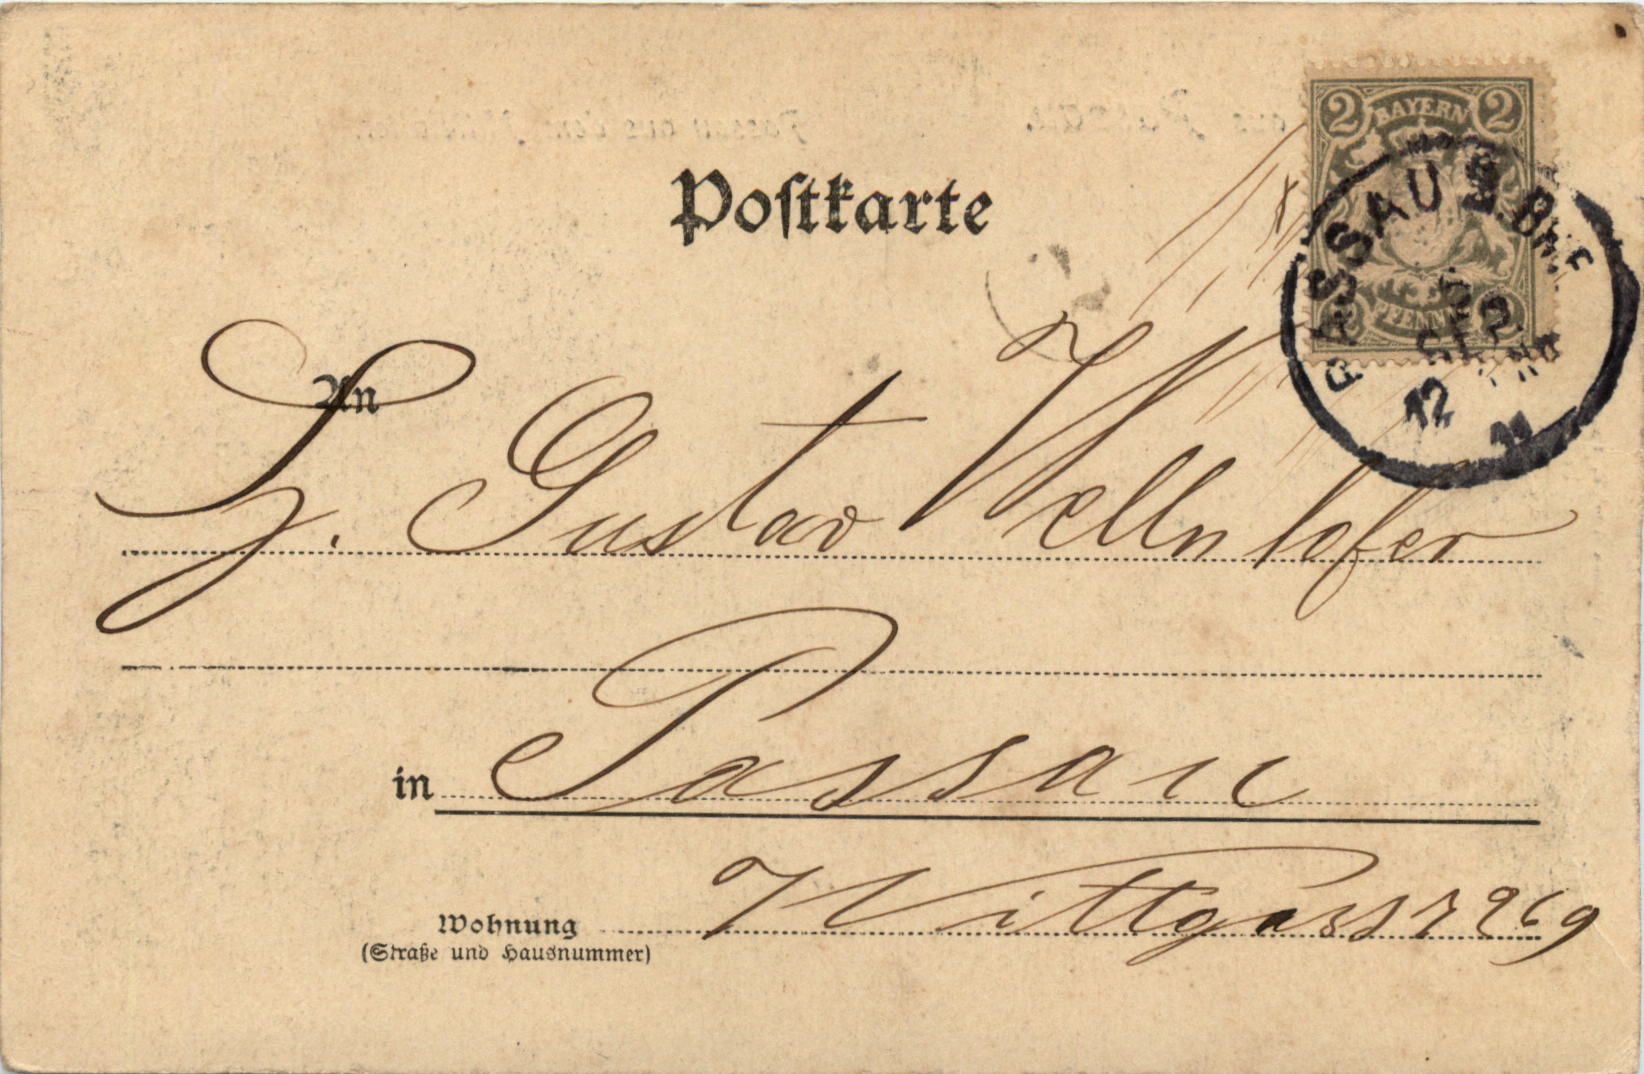 2 BAYERN 2
Postkarte
PASSAU 2. B
12
11
An
H. Gustav Wellnhofer
in Passau
Wohnung
(Straße und Hausnummer)
Wittgasse 269